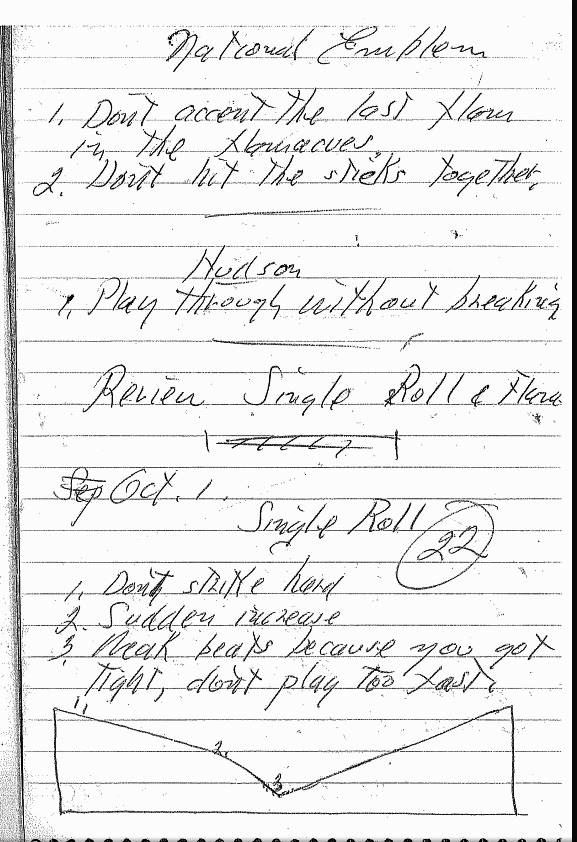 National Emblem
1. Don't accent the last flam
in the flamacues.
2. Don't hit the sticks together.
Hudson
1. Play through without breaking
Review Single Roll & Flam
Sep Oct. 1.
Single Roll 22
1. Don't strike hard
2. Sudden increase
3. Weak beats because you got
tight, don't play too fast.
1.
2.
3